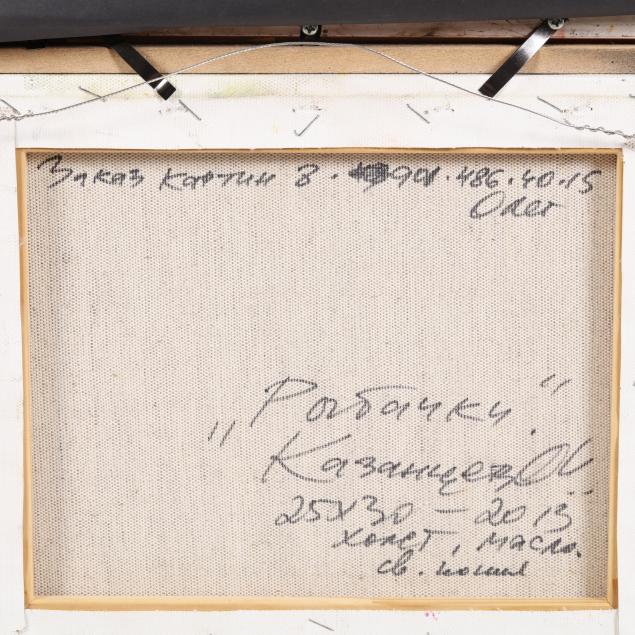 Заказ картин 8. 901.486.40.15
Олег
„Рыбачки."
Казанцев О.
25х30 – 2013
холст, масло.
св.